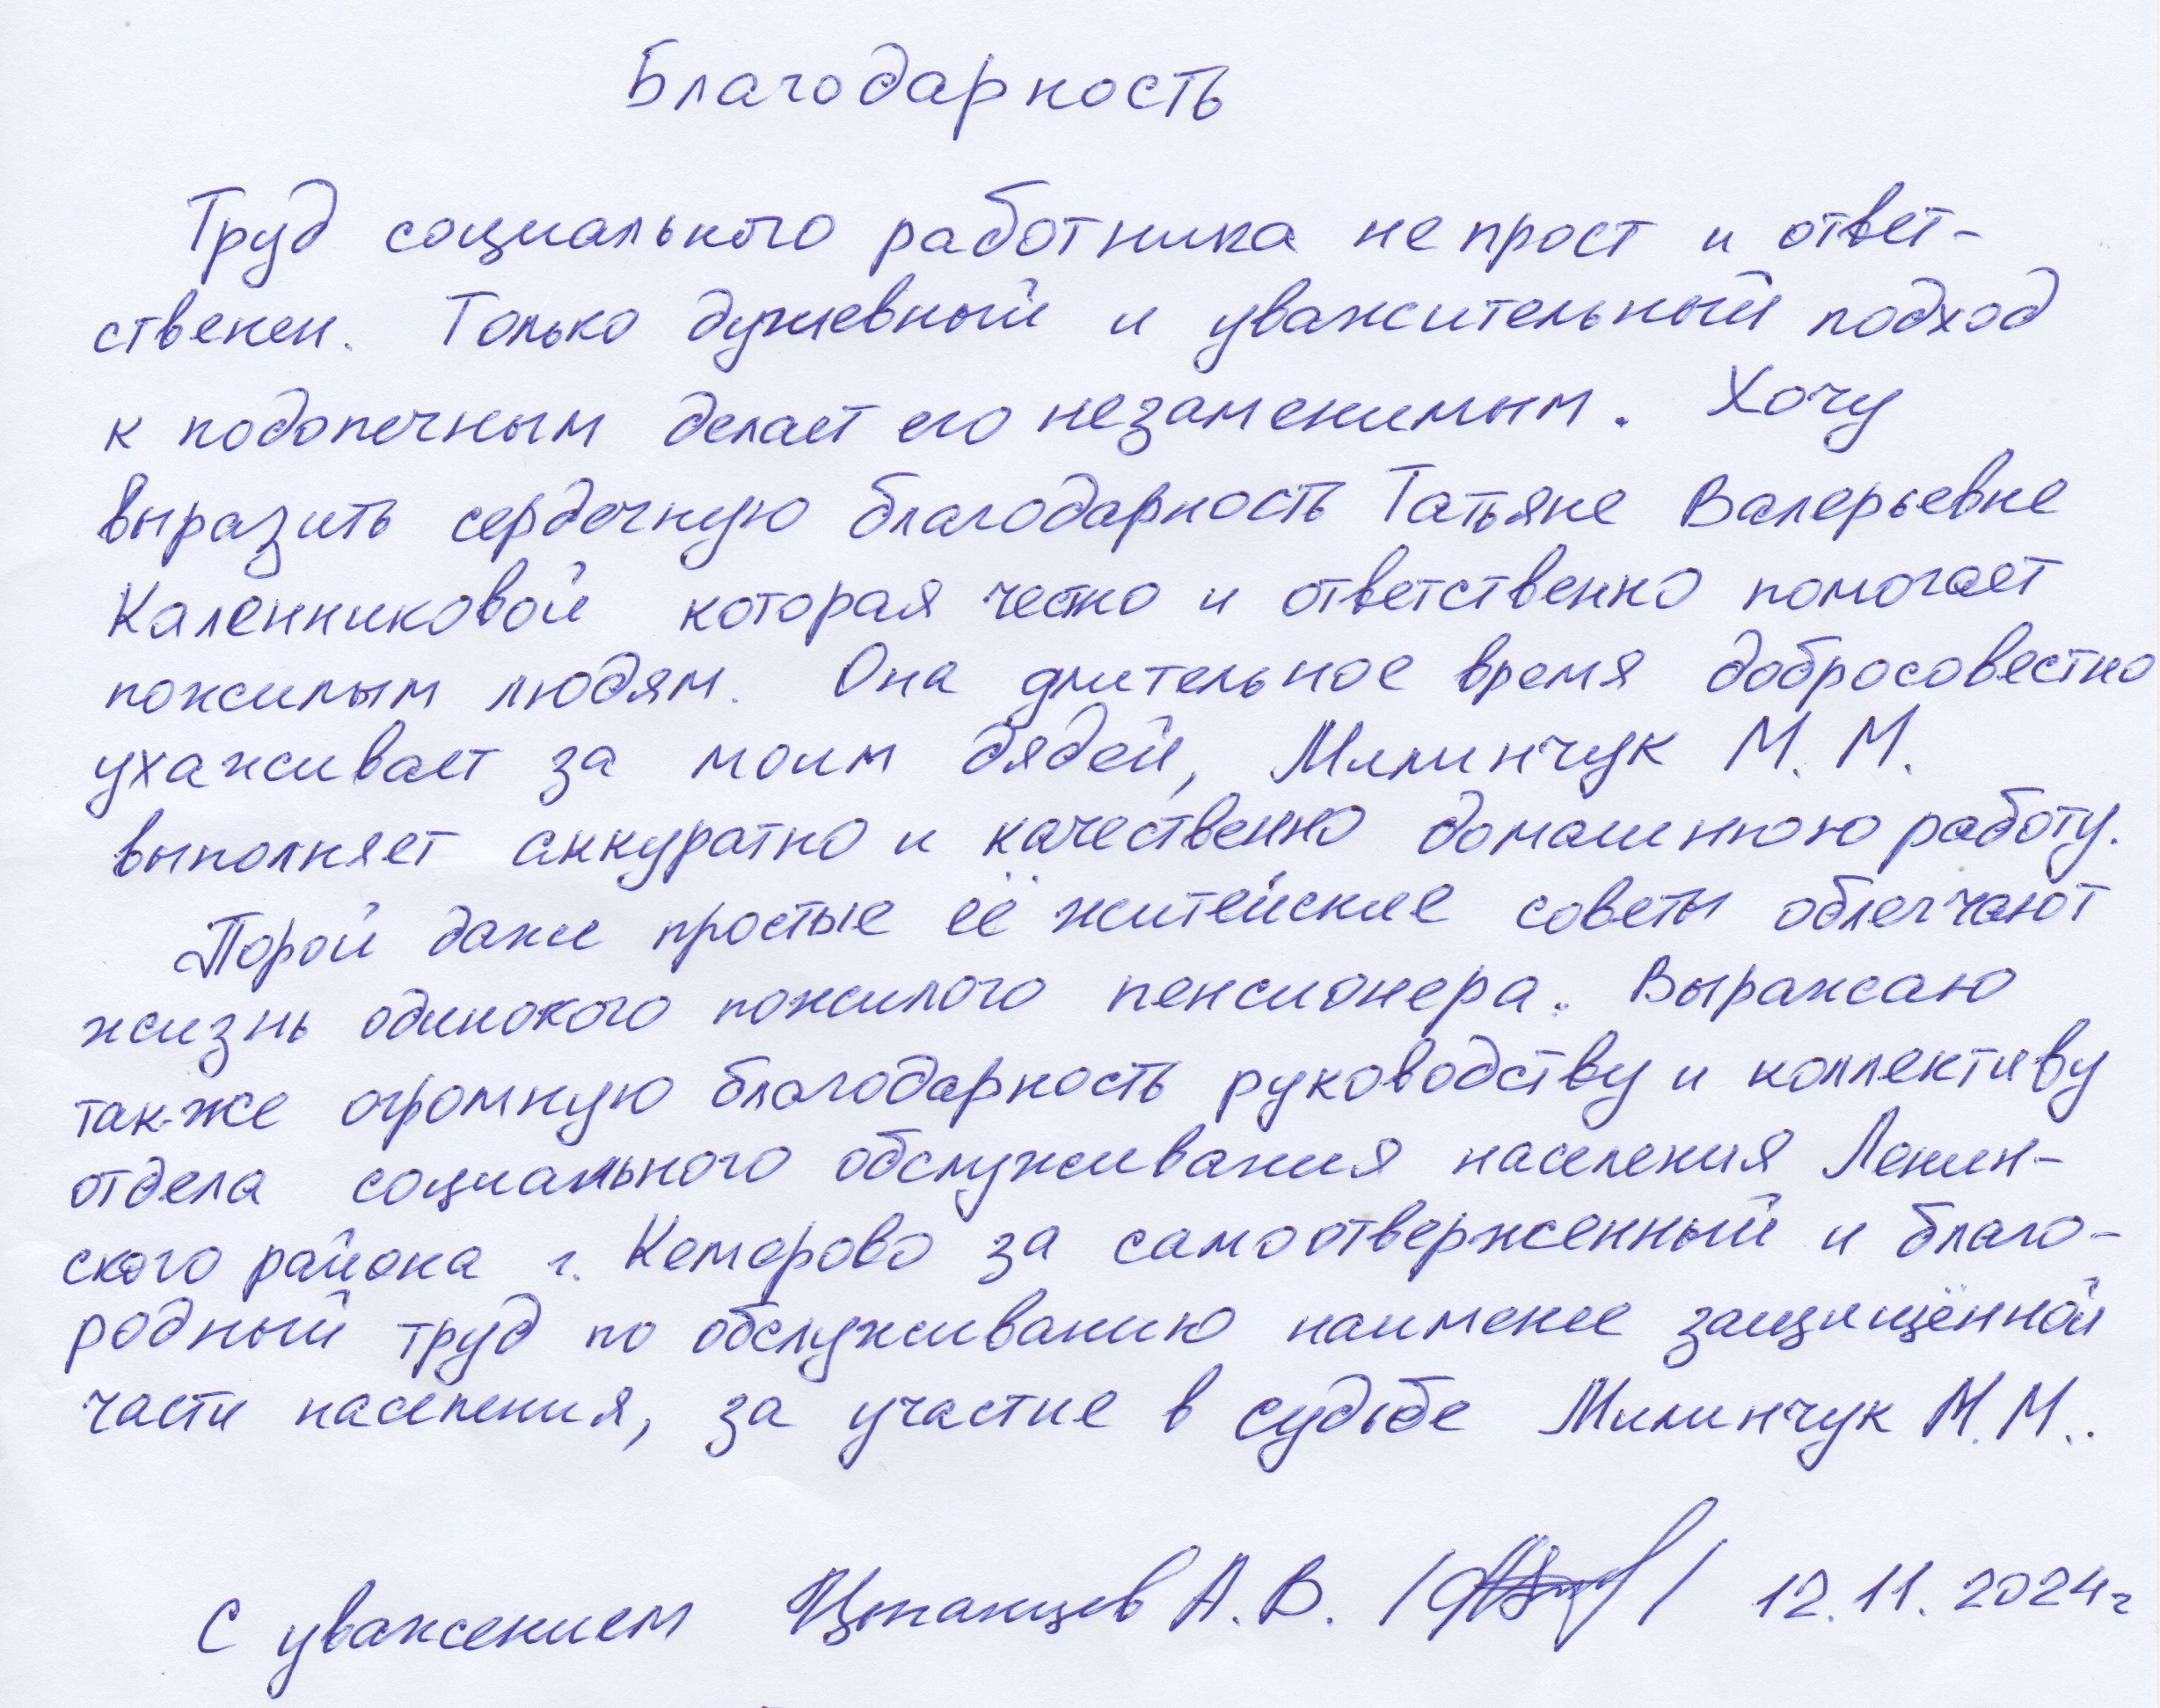 Благодарность
Труд социального работника не прост и ответ-
ственен. Только душевный и уважительный подход
к подопечным делает его незаменимым. Хочу
выразить сердечную благодарность Татьяне Валерьевне
Каленниковой которая честно и ответственно помогает
пожилым людям. Она длительное время добросовестно
ухаживает за моим дядей, Милинчук М. М.
выполняет аккуратно и качественно домашнюю работу.
Порой даже простые её житейские советы облегчают
жизнь одинокого пожилого пенсионера. Выражаю
так-же огромную благодарность руководству и коллективу
отдела социального обслуживания населения Ленин-
ского района г. Кемерово за самоотверженный и благо-
родный труд по обслуживанию наименее защищённой
части населения, за участие в судьбе Милинчук М.М..
С уважением А. В. / / 12.11.2024г